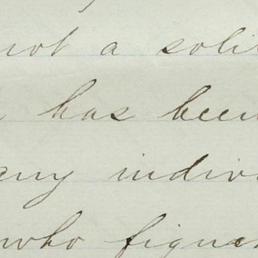 not a soli
has been
any indivi
who figu